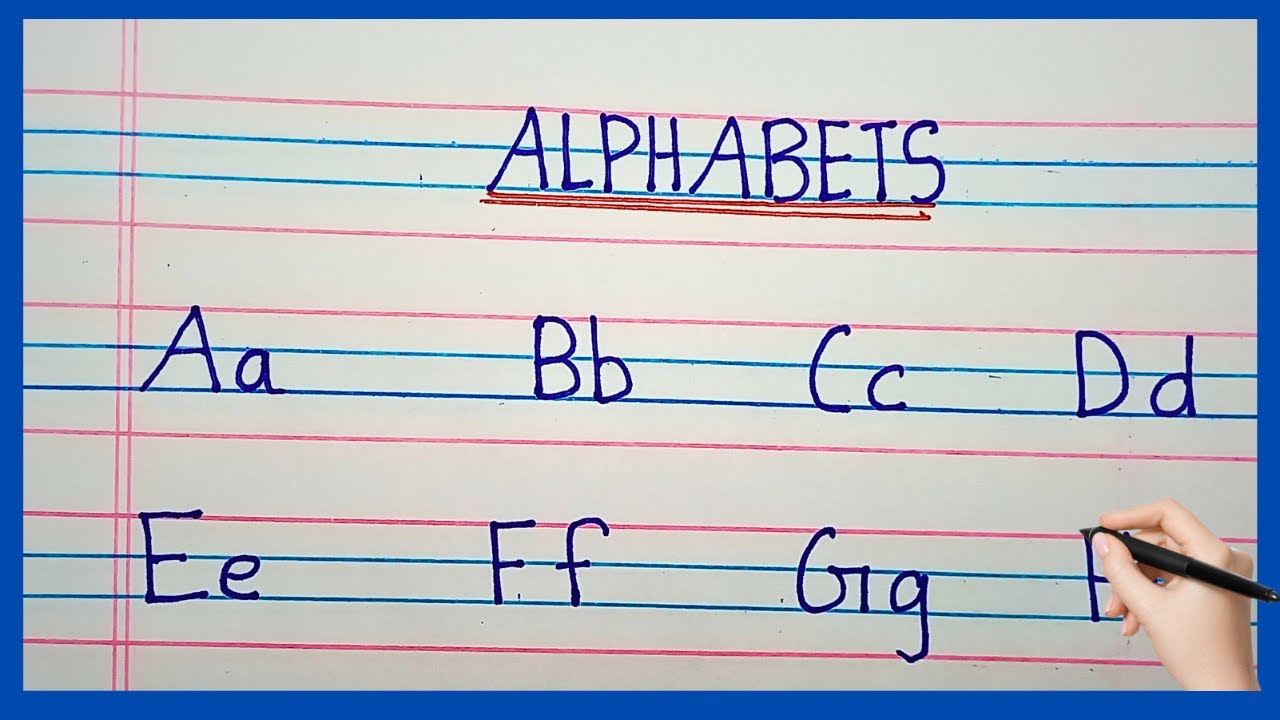 ALPHABETS
Aa Bb Cc Dd
Ee Ff Gg